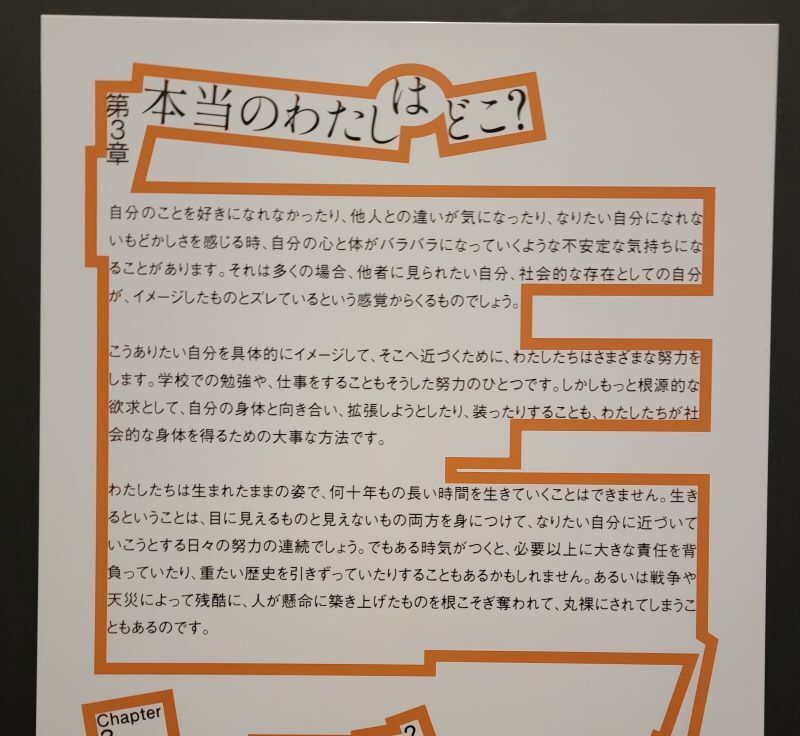 第3章
本当のわたしはどこ?
自分のことを好きになれなかったり、他人との違いが気になったり、なりたい自分になれな
いもどかしさを感じる時、自分の心と体がバラバラになっていくような不安定な気持ちにな
ることがあります。それは多くの場合、他者に見られたい自分、社会的な存在としての自分
が、イメージしたものとズレているという感覚からくるものでしょう。
こうありたい自分を具体的にイメージして、そこへ近づくために、わたしたちはさまざまな努力を
します。学校での勉強や、仕事をすることもそうした努力のひとつです。しかしもっと根源的な
欲求として、自分の身体と向き合い、拡張しようとしたり、装ったりすることも、わたしたちが社
会的な身体を得るための大事な方法です。
わたしたちは生まれたままの姿で、何十年もの長い時間を生きていくことはできません。生き
るということは、目に見えるものと見えないもの両方を身につけて、なりたい自分に近づいて
いこうとする日々の努力の連続でしょう。でもある時気がつくと、必要以上に大きな責任を背
負っていたり、重たい歴史を引きずっていたりすることもあるかもしれません。あるいは戦争や
天災によって残酷に、人が懸命に築き上げたものを根こそぎ奪われて、丸裸にされてしまうこ
ともあるのです。
Chapter